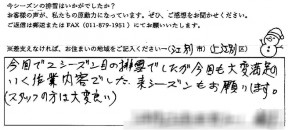 今シーズンの排雪はいかがでしたか？
お客様の声が、私たちの原動力になっています。ぜひ、ご感想をお聞かせください。
返信は郵送またはFAX（011-879-1951）にてお願いいたします。
※差支えなければ、お住まいの地域をご記入ください…（江別市）（上江別区）
今回で2シーズン目の排雪でしたが今回も大変満足の
いく作業内容でした。来シーズンもお願いします。
（スタッフの方は大変良い）